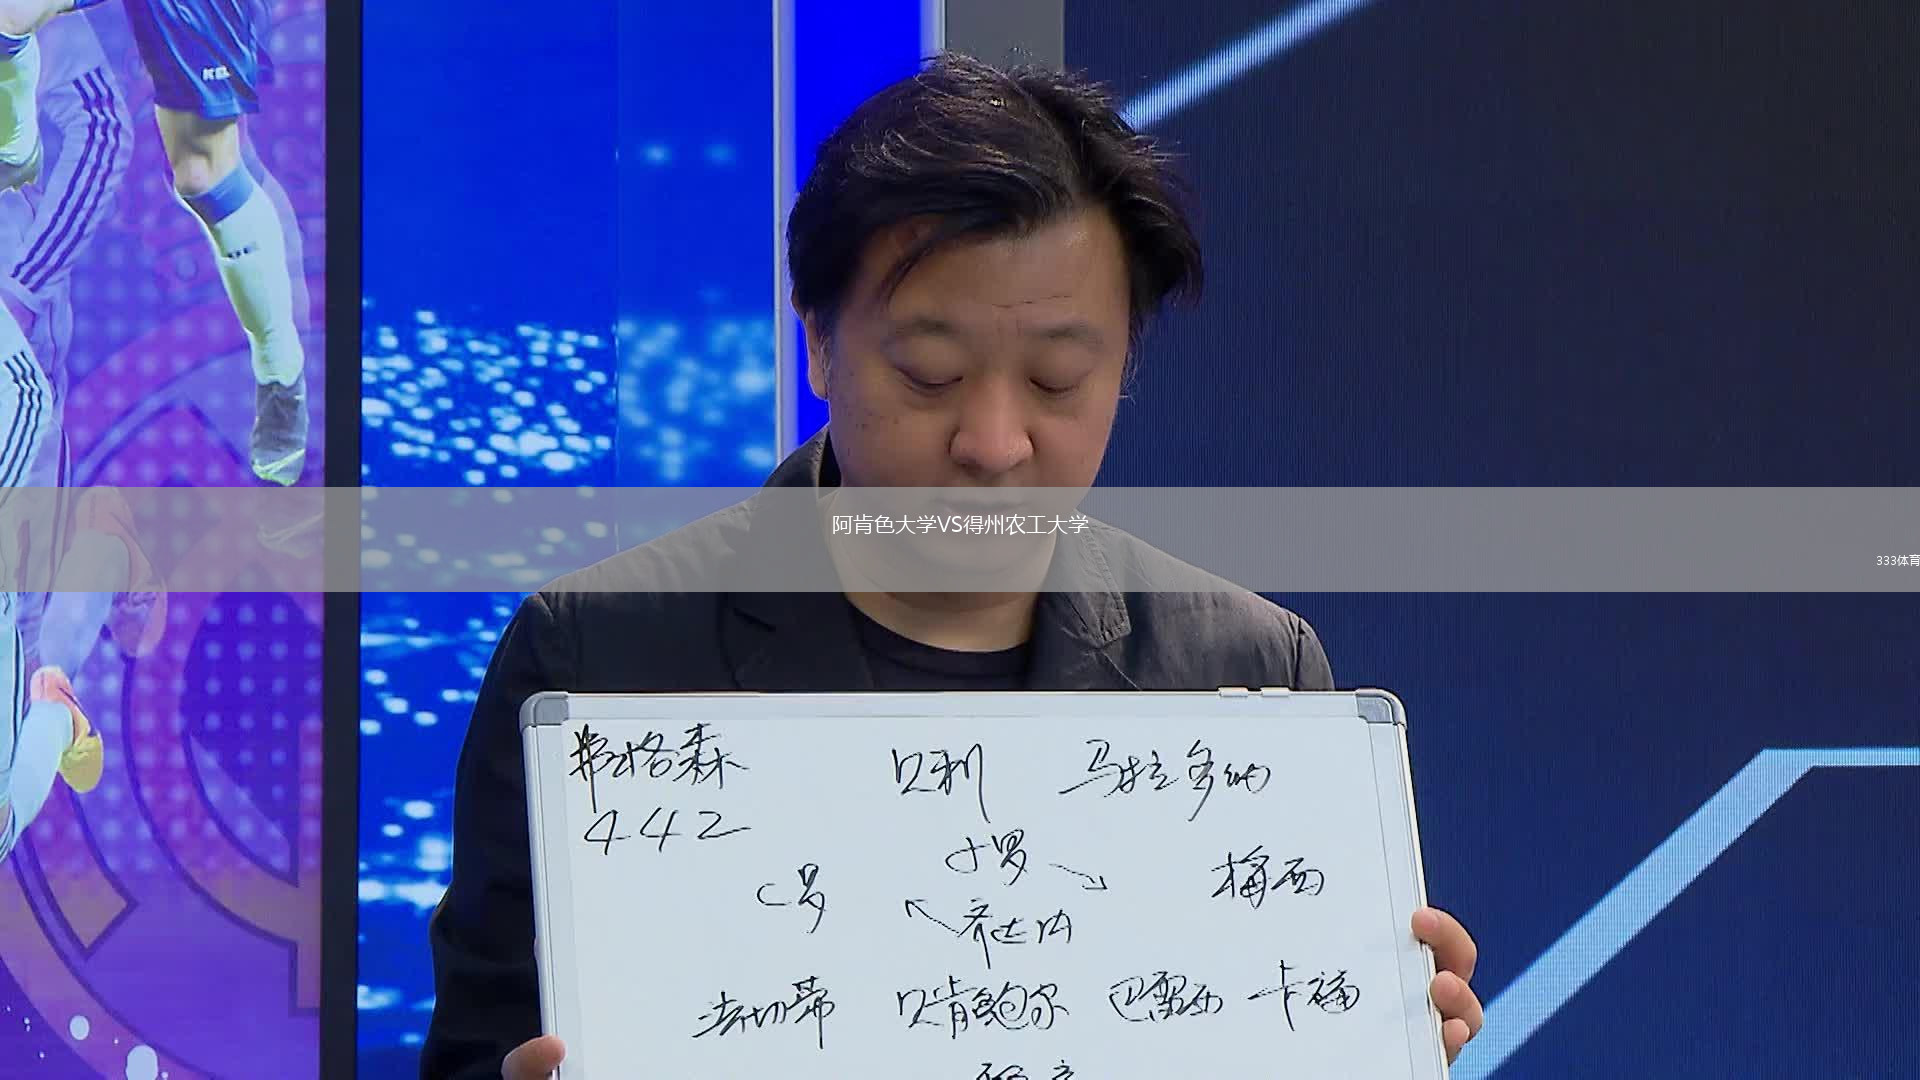 KEL
阿肯色大学VS得州农工大学
333体育
弗格森 贝利 马拉多纳
442
小罗
C罗 梅西
齐达内
法切蒂 贝肯鲍尔 巴雷西 卡福